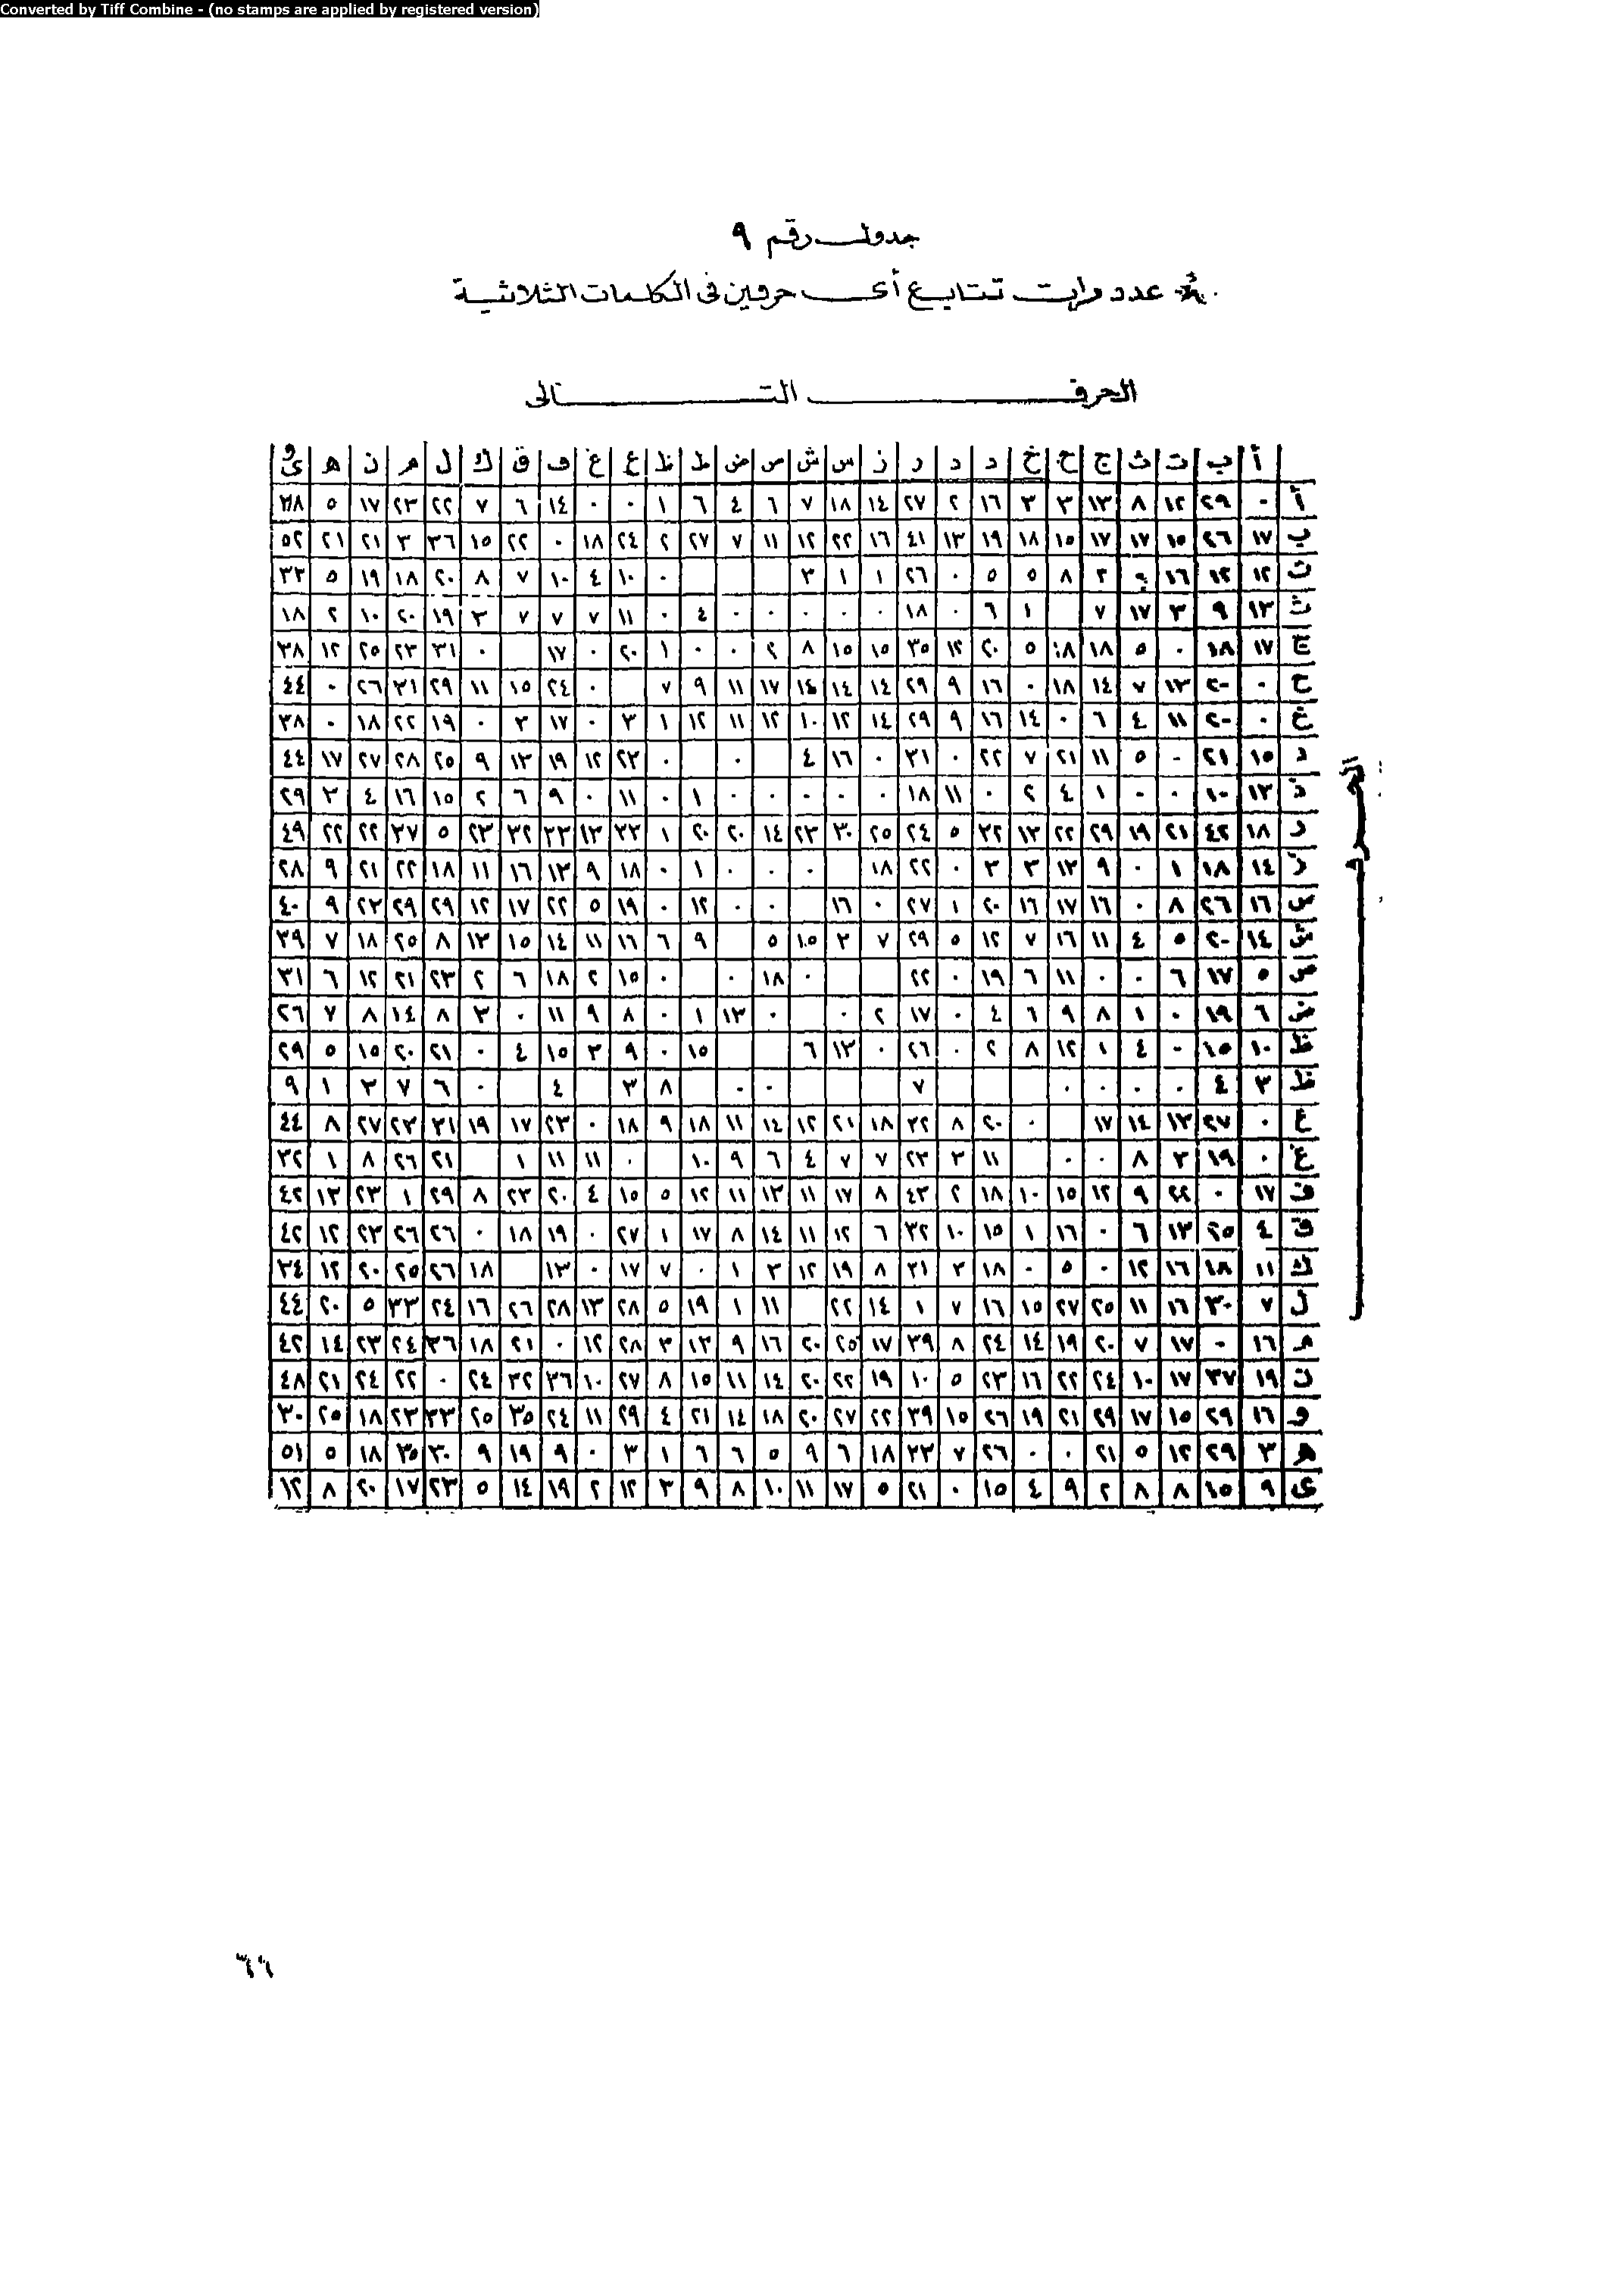 Converted by Tiff Combine - (no stamps are applied by registered version)
جدول رقم ٩
عدد مرات تتابع أى حرفين فى الكلمات الثلاثية
الحرف التالى
أ ب ت ث ج ح خ د ذ ر ز س ش ص ض ط ظ ع غ ف ق ك ل م ن ه و ى
أ ٠ ٢٩ ١٢ ٨ ١٣ ٣ ٣ ١٦ ٢ ٢٧ ١٤ ١٨ ٧ ٦ ٤ ٦ ١ ٠ ٠ ١٤ ٦ ٧ ٢٢ ٢٣ ١٧ ٥ ٣٨
ب ١٧ ٢٦ ١٥ ١٧ ١٧ ١٥ ١٨ ١٩ ١٣ ٤١ ١٦ ٢٢ ١٢ ١١ ٧ ٢٧ ٢ ٢٤ ١٨ ٠ ٢٢ ١٥ ٣٦ ٣ ٢١ ٢١ ٥٢
ت ١٢ ١٢ ١٦ ٣ ٨ ٥ ٥ ٠ ٢٦ ١ ١ ٣ ٠ ١٠ ٤ ١٠ ٧ ٨ ٢٠ ١٨ ١٩ ٥ ٣٣
ث ١٣ ٩ ٣ ١٧ ٧ ١ ٦ ٠ ١٨ ٠ ٠ ٠ ٠ ٠ ٤ ٠ ١١ ٧ ٧ ٧ ٣ ١٩ ٢٠ ١٠ ٢ ١٨
ج ١٧ ١٨ ٠ ٥ ١٨ ١٨ ٥ ٢٠ ١٢ ٣٥ ١٥ ١٥ ٨ ٢ ٠ ٠ ١ ٢٠ ٠ ١٧ ٠ ٣١ ٢٣ ٢٥ ١٢ ٣٨
ح ٠ ٢٠ ١٣ ٧ ١٤ ١٨ ٠ ١٦ ٩ ٢٩ ١٤ ١٤ ١٤ ١٧ ١١ ٩ ٧ ٠ ٢٤ ١٥ ١١ ٢٩ ٣١ ٢٦ ٠ ٤٤
خ ٠ ٢٠ ١١ ٤ ٦ ٠ ١٤ ١٦ ٩ ٢٩ ١٤ ١٢ ١٠ ١٢ ١١ ١٢ ١ ٣ ٠ ١٧ ٣ ٠ ١٩ ٢٢ ١٨ ٠ ٣٨
د ١٥ ٢١ ٠ ٥ ١١ ٢١ ٧ ٢٢ ٠ ٣١ ٠ ١٦ ٤ ٠ ٠ ٢٣ ١٢ ١٩ ١٣ ٩ ٢٥ ٢٨ ٢٧ ١٧ ٤٤
ذ ١٣ ١٠ ٠ ٠ ١ ٤ ٢ ٠ ١١ ١٨ ٠ ٠ ٠ ٠ ٠ ١ ٠ ١١ ٠ ٩ ٦ ٢ ١٥ ١٦ ٤ ٣ ٢٩
ر ١٨ ٤٢ ٢١ ١٩ ٢٩ ٢٢ ١٣ ٣٢ ٥ ٢٤ ٢٥ ٣٠ ٢٣ ١٤ ٢٠ ٢٠ ١ ٣٣ ١٣ ٣٣ ٣٢ ٢٣ ٥ ٣٧ ٢٢ ٢٢ ٤٩
ز ١٤ ١٨ ١ ٠ ٩ ١٣ ٣ ٣ ٠ ٢٢ ١٨ ٠ ٠ ٠ ١ ٠ ١٨ ٩ ١٣ ١٦ ١١ ١٨ ٢٢ ٢١ ٩ ٢٨
س ١٦ ٢٦ ٨ ٠ ١٦ ١٧ ١٦ ٢٠ ١ ٢٧ ٠ ١٦ ٠ ٠ ١٢ ٠ ١٩ ٥ ٢٢ ١٧ ١٢ ٢٩ ٢٩ ٢٣ ٩ ٤٠
ش ١٤ ٢٠ ٥ ٤ ١١ ١٦ ٧ ١٢ ٥ ٢٩ ٧ ٣ ١٥ ٥ ٩ ٦ ١٦ ١١ ١٤ ١٥ ١٣ ٨ ٢٥ ١٨ ٧ ٣٩
ص ٥ ١٧ ٦ ٠ ٠ ١١ ٦ ١٩ ٠ ٢٢ ٠ ١٨ ٠ ٠ ١٥ ٢ ١٨ ٦ ٢ ٢٣ ٢١ ١٢ ٦ ٣١
ض ٦ ١٩ ٠ ١ ٨ ٩ ٦ ٤ ٠ ١٧ ٢ ٠ ٠ ١٣ ١ ٠ ٨ ٩ ١١ ٠ ٣ ٨ ١٤ ٨ ٧ ٢٦
ط ١٠ ١٥ ٠ ٤ ١ ١٢ ٨ ٢ ٠ ٢٦ ٠ ١٣ ٦ ١٥ ٠ ٩ ٣ ١٥ ٤ ٠ ٢١ ٢٠ ١٥ ٥ ٢٩
ظ ٣ ٤ ٠ ٠ ٠ ٠ ٧ ٠ ٠ ٨ ٣ ٤ ٠ ٦ ٧ ٣ ١ ٩
ع ٠ ٢٧ ١٣ ١٤ ١٧ ٠ ٢٠ ٨ ٣٢ ١٨ ٢١ ١٢ ١٤ ١١ ١٨ ٩ ١٨ ٠ ٢٣ ١٧ ١٩ ٣١ ٢٣ ٢٧ ٨ ٤٤
غ ٠ ١٩ ٣ ٨ ٠ ٠ ١١ ٣ ٢٣ ٧ ٧ ٤ ٦ ٩ ١٠ ٠ ١١ ١١ ١ ٢١ ٢٦ ٨ ١ ٣٢
ف ١٧ ٠ ٢٢ ٩ ١٢ ١٥ ١٠ ١٨ ٢ ٤٣ ٨ ١٧ ١١ ١٣ ١١ ١٢ ٥ ١٥ ٤ ٢٠ ٢٣ ٨ ٢٩ ١ ٢٣ ١٣ ٤٢
ق ٤ ٢٥ ١٣ ٦ ٠ ١٦ ١ ١٥ ١٠ ٣٢ ٦ ١٢ ١١ ١٤ ٨ ١٧ ١ ٢٧ ٠ ١٩ ١٨ ٠ ٢٦ ٢٦ ٢٣ ١٢ ٤٢
ك ١١ ١٨ ١٦ ١٢ ٠ ٥ ٠ ١٨ ٣ ٣١ ٨ ١٩ ١٢ ٣ ١ ٠ ٧ ١٧ ٠ ١٣ ١٨ ٢٦ ٢٥ ٢٠ ١٢ ٣٤
ل ٧ ٣٠ ١٦ ١١ ٢٥ ٢٧ ١٥ ١٦ ٧ ١ ١٤ ٢٢ ١١ ١ ١٩ ٥ ٢٨ ١٣ ٢٨ ٢٦ ١٦ ٢٤ ٣٣ ٥ ٢٠ ٤٤
م ١٦ ٠ ١٧ ٧ ٢٠ ١٩ ١٤ ٢٤ ٨ ٣٩ ١٧ ٢٥ ٢٠ ١٦ ٩ ١٣ ٣ ٢٨ ١٢ ٠ ٢١ ١٨ ٣٦ ٢٤ ٢٣ ١٤ ٤٢
ن ١٩ ٣٧ ١٧ ١٠ ٢٤ ٢٢ ١٦ ٢٣ ٥ ١٠ ١٩ ٢٢ ٢٠ ١٤ ١١ ١٥ ٨ ٢٧ ١٠ ٣٦ ٣٢ ٢٤ ٠ ٢٢ ٢٤ ٢١ ٤٨
و ١٦ ٢٩ ١٥ ١٧ ٢٩ ٢١ ١٩ ٢٦ ١٥ ٣٩ ٢٢ ٢٧ ٢٠ ١٨ ١٤ ٢١ ٤ ٢٩ ١١ ٢٤ ٣٥ ٢٥ ٣٣ ٢٣ ١٨ ٢٥ ٣٠
ه ٣ ٢٩ ١٢ ٥ ٢١ ٠ ٠ ٢٦ ٧ ٣٣ ١٨ ٦ ٩ ٥ ٦ ٦ ١ ٣ ٠ ٩ ١٩ ٩ ٣٠ ٣٥ ١٨ ٥ ٥١
ى ٩ ١٥ ٨ ٨ ٢ ٩ ٤ ١٥ ٠ ٢١ ٥ ١٧ ١١ ١٠ ٨ ٩ ٣ ١٢ ٢ ١٩ ١٤ ٥ ٢٣ ١٧ ٢٠ ٨ ١٢
٦٦